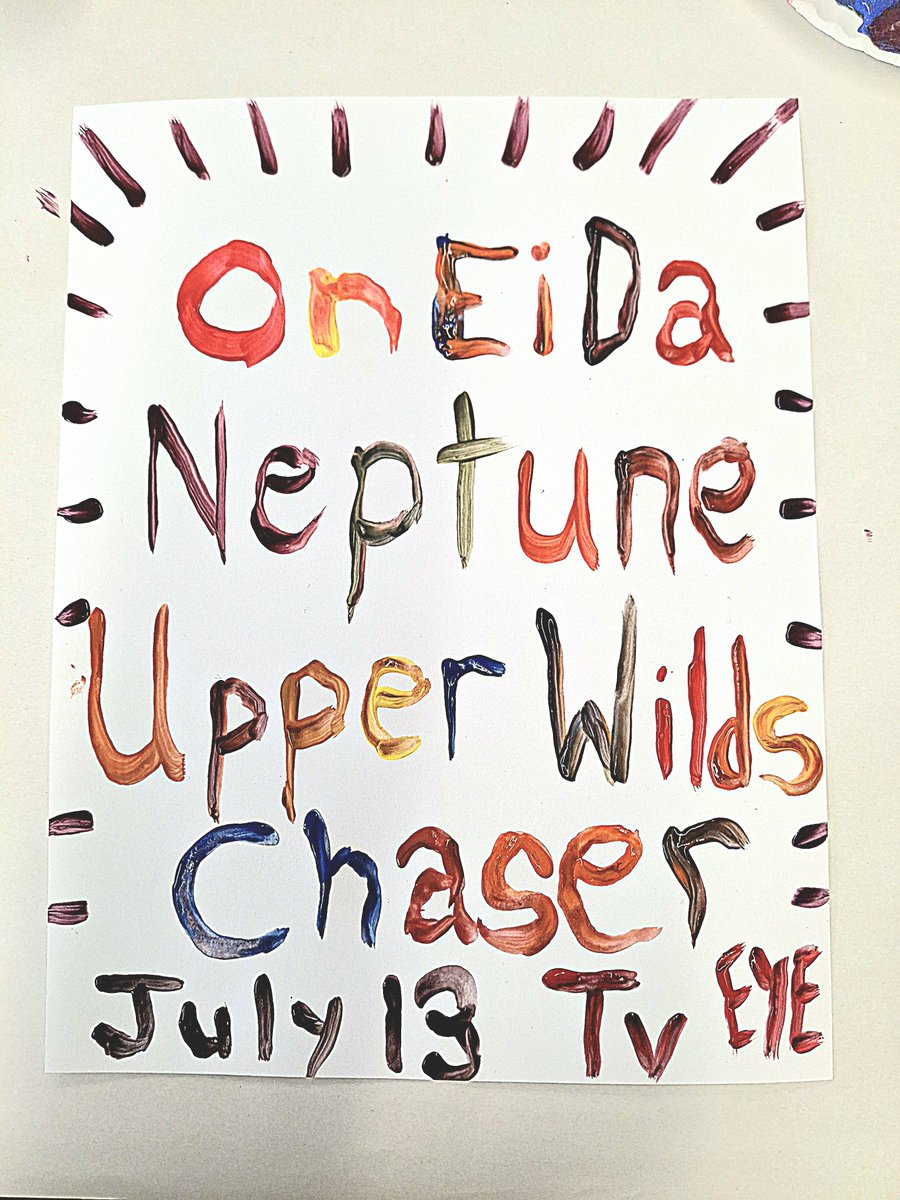 OnEiDa
Neptune
Upper Wilds
Chaser
July 13 Tv EYE